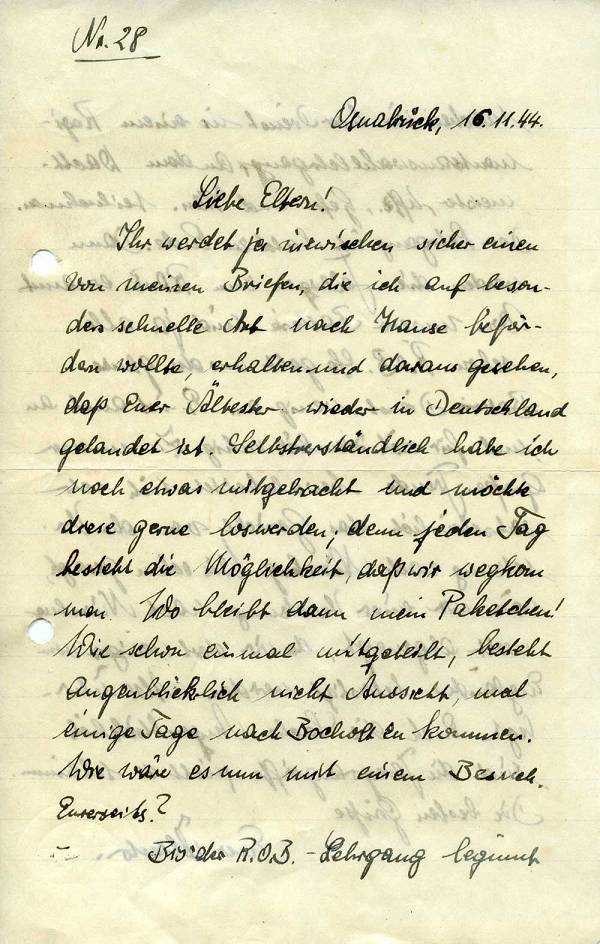 Nr. 28
Osnabrück, 16.11.44.
Liebe Eltern!
Ihr werdet ja inzwischen sicher einen
von meinen Briefen, die ich auf beson-
ders schnelle Art nach Hause beför-
dern wollte, erhalten und daraus gesehen,
daß Euer Ältester wieder in Deutschland
gelandet ist. Selbstverständlich habe ich
noch etwas mitgebracht und möchte
diese gerne loswerden; denn jeden Tag
besteht die Möglichkeit, daß wir wegkom
men. Wo bleibt dann mein Paketchen!
Wie schon einmal mitgeteilt, besteht
augenblicklich nicht Aussicht, mal
einige Tage nach Bocholt zu kommen.
Wie wäre es nun mit einem Besuch
Eurerseits?
Bis der R.O.B.-Lehrgang beginnt